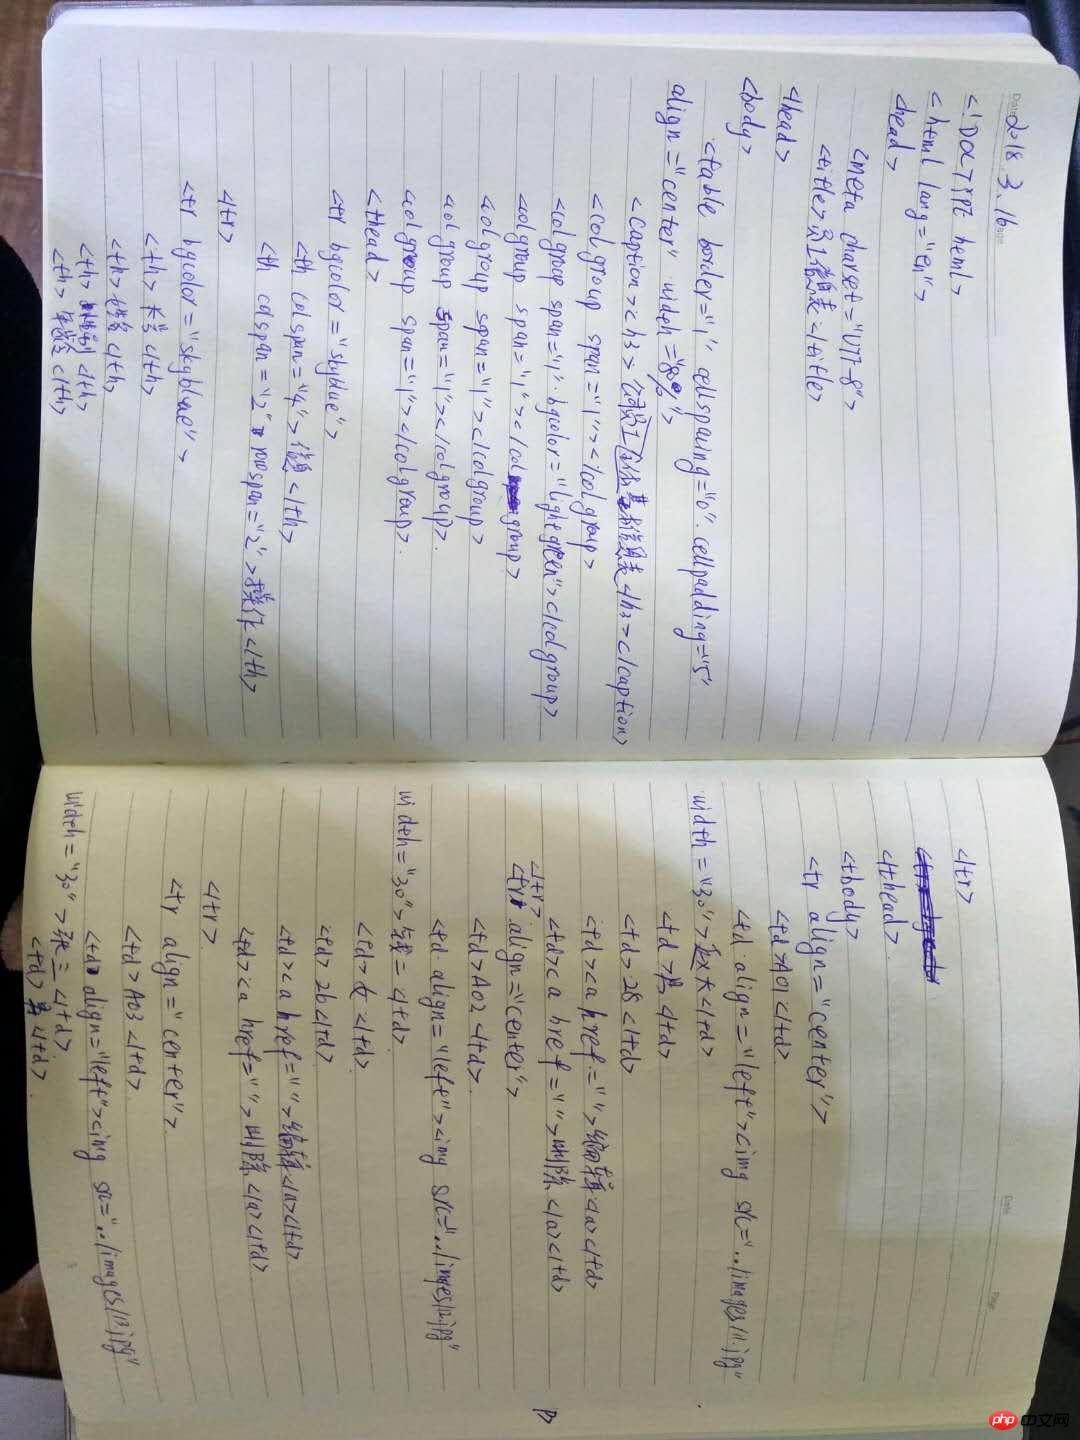 Date 2018.3.16 Page
<!DOCTYPE html>
<html lang="en">
<head>
<meta charet="UTF-8">
<title>员工信息表</title>
</head>
<body>
<table border="1" cellspacing="0" cellpadding="5"
align="center" width="80%">
<caption><h3>员工信息表</h3></caption>
<colgroup span="1"></colgroup>
<colgroup span="1" bgcolor="lightgreen"></colgroup>
<colgroup span="1"></colgroup>
<colgroup span="1"></colgroup>
<colgroup span="1"></colgroup>
<colgroup span="1"></colgroup>
<thead>
<tr bgcolor="skyblue">
<th colspan="4">信息</th>
<th colspan="2" rowspan="2">操作</th>
</tr>
<tr bgcolor="skyblue">
<th> </th>
<th>姓名</th>
<th>性别</th>
<th>年龄</th>
</tr>
</thead>
<tbody>
<tr align="center">
<td>A01</td>
<td align="left"><img src="../images/1.jpg"
width="30"> </td>
<td>男</td>
<td>28</td>
<td><a href="">编辑</a></td>
<td><a href="">删除</a></td>
</tr>
<tr align="center">
<td>A02</td>
<td align="left"><img src="../images/2.jpg"
width="30"> </td>
<td>女</td>
<td>26</td>
<td><a href="">编辑</a></td>
<td><a href="">删除</a></td>
</tr>
<tr align="center">
<td>A03</td>
<td align="left"><img src="../images/3.jpg"
width="30">张三</td>
<td>男</td>
Date Page
php 中文网